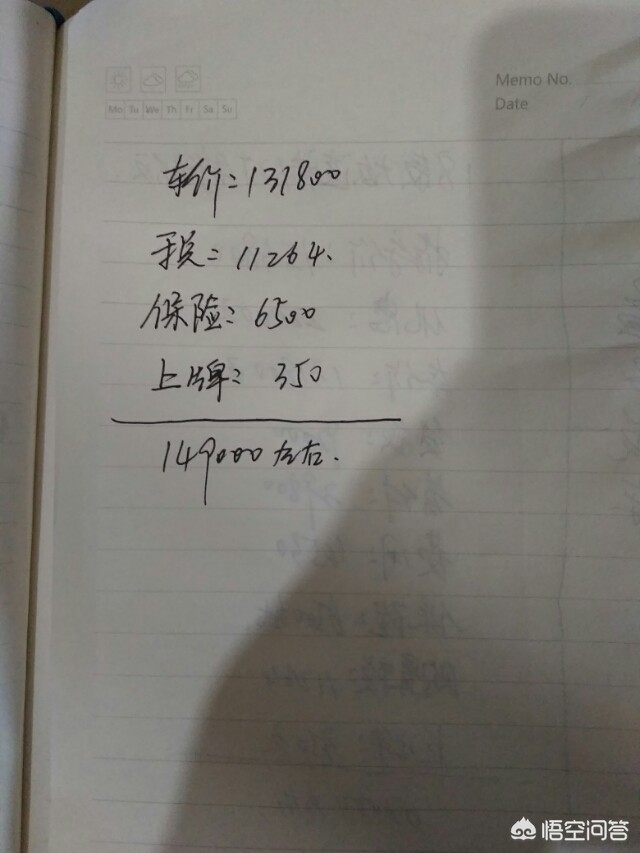 Memo No.
Date
Mo Tu We Th Fr Sa Su
车价:131800
税:11264.
保险:6500
上牌:350
149000左右.
悟空问答